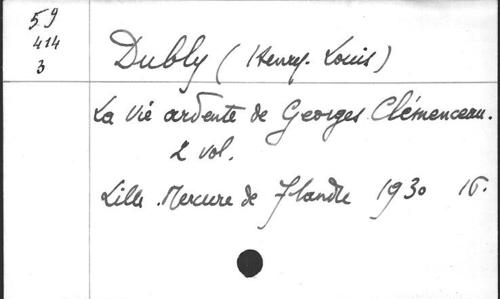 59
414
3
Dubly (Henry-Louis)
La vie ardente de Georges Clémenceau.
2 vol.
Lille. Mercure de Flandre 1930 16.